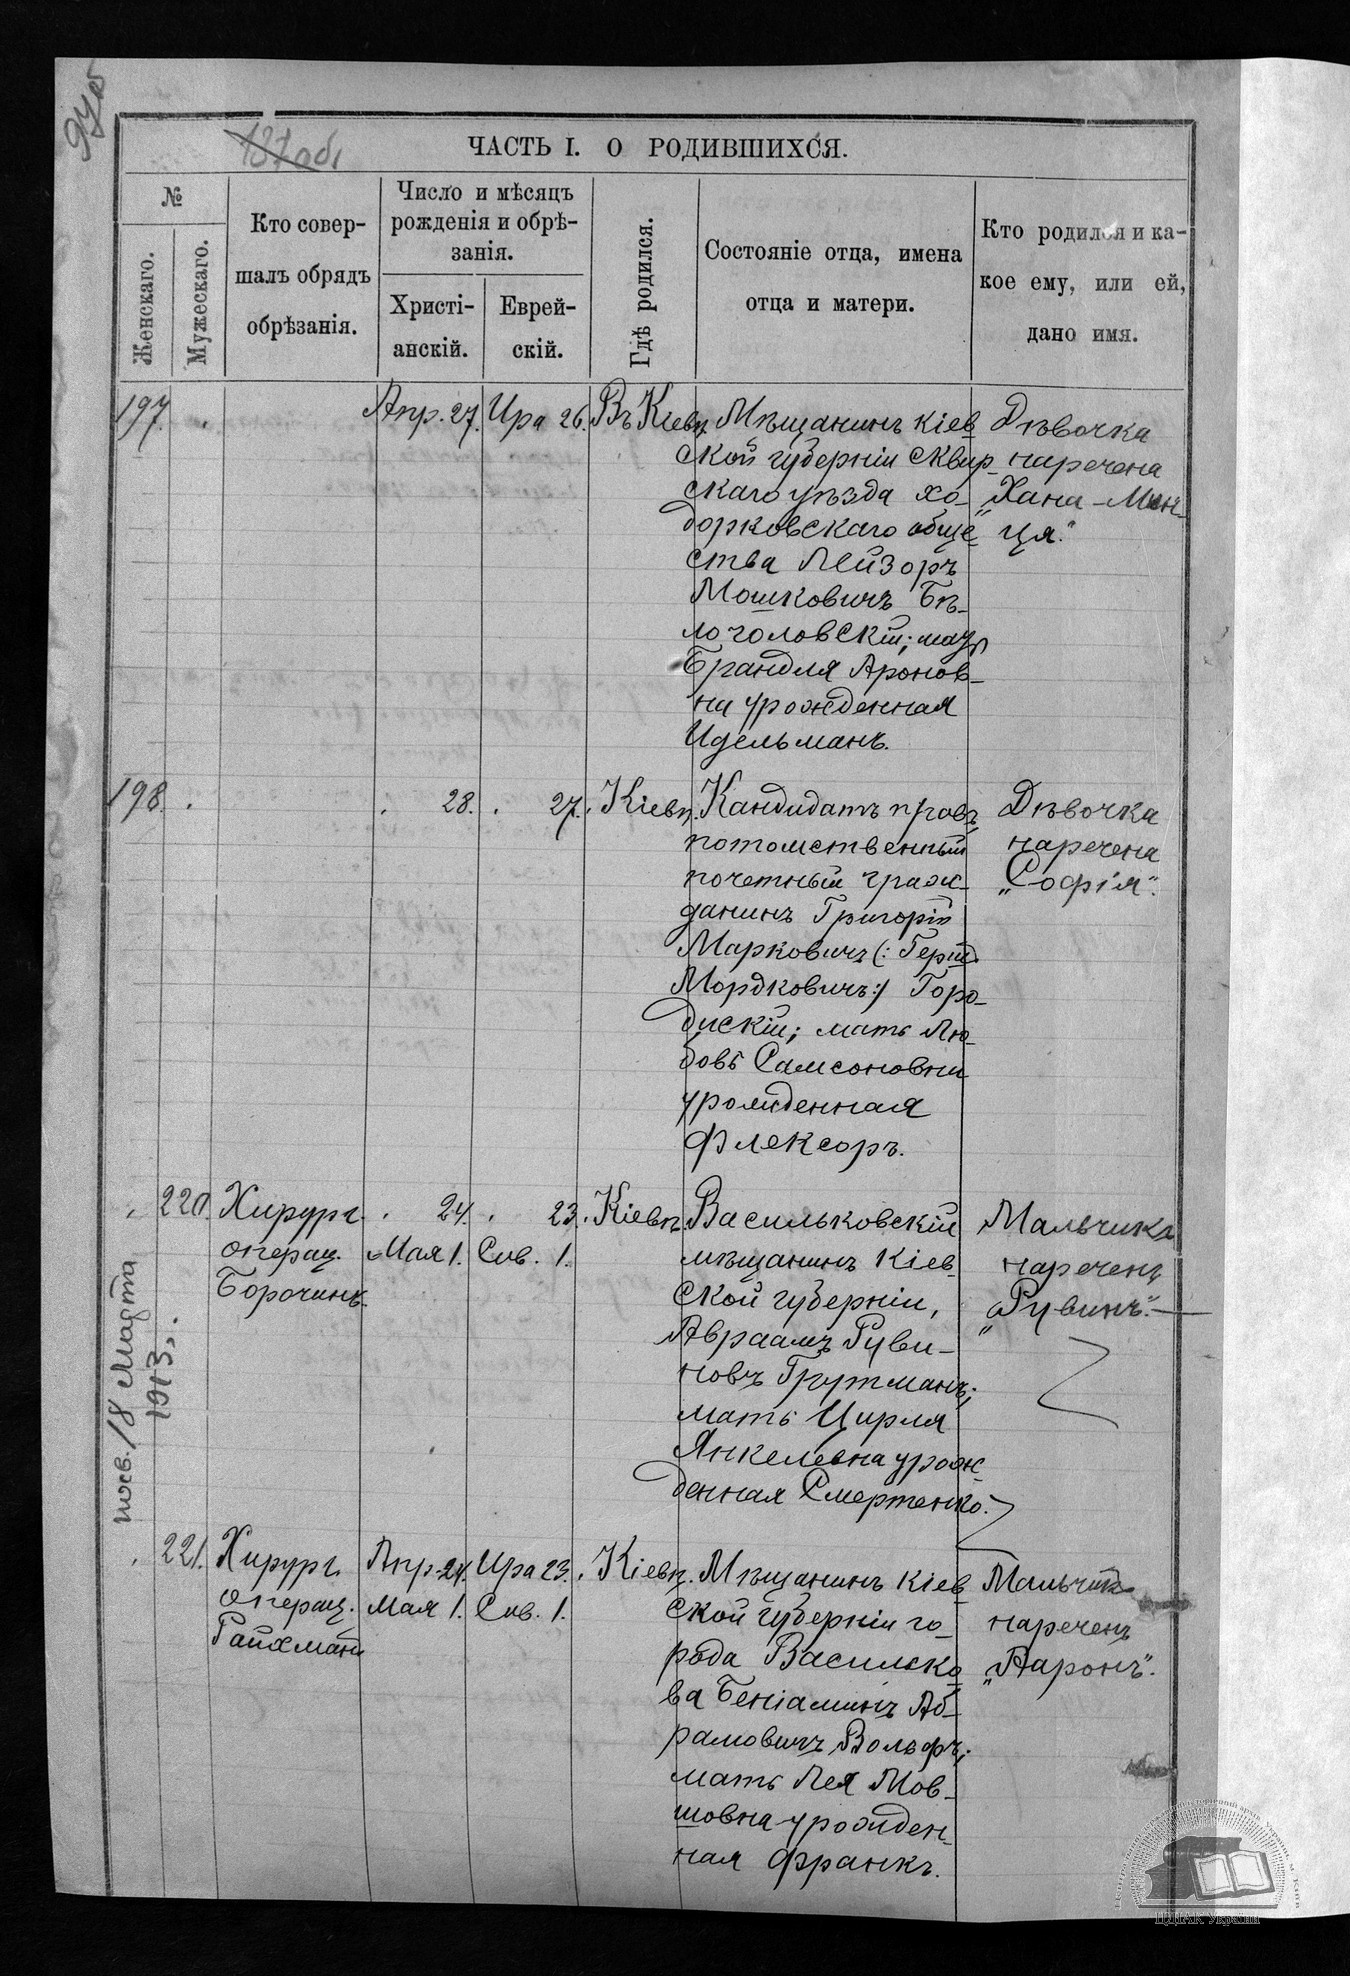 94об
187об.
ЧАСТЬ I. О РОДИВШИХСЯ.
№
Женскаго.
Мужескаго.
Кто совер-
шалъ обрядъ
обрѣзанія.
Число и мѣсяцъ
рожденія и обрѣ-
занія.
Христі-
анскій.
Еврей-
скій.
Гдѣ родился.
Состояніе отца, имена
отца и матери.
Кто родился и ка-
кое ему, или ей,
дано имя.
197. Апр. 27. Ира 26. Въ Кіевѣ
Мѣщанинъ Кіев
ской губерніи Сквир-
скаго уѣзда Хо-
дорковскаго обще-
ства Лейзоръ
Мошковичъ Бѣ-
логоловскій; мать
Брандля Аронов-
на урожденная
Идельманъ.
Дѣвочка
наречена
„Хана-Мин-
ця.“
198. 28. 27. Кіевѣ.
Кандидатъ правъ,
потомственный
почетный граж-
данинъ Григорій
Марковичъ (: Герш
Мордковичъ:) Горо-
дискій; мать Лю-
бовь Самсоновна
урожденная
Флексоръ.
Дѣвочка
наречена
„Софія“.
220. Хирург. 24. 23. Кіевѣ
операц. Мая 1. Сив. 1.
Борочинъ.
Васильковскій
мѣщанинъ Кіев-
ской губерніи,
Авраамъ Руви-
новъ Гругманъ;
мать Цирля
Янкелевна урож-
денная Смертенко.
Мальчика
нареченъ
„Рувинъ“.
посв. 18 Марта
1913.
221. Хирург. Апр. 24. Ира 23. Кіевѣ.
операц. Мая 1. Сив. 1.
Райхманъ
Мѣщанинъ Кіев
ской губерніи го-
рода Василько
ва Беніаминъ Аб-
рамовичъ Вольфъ;
мать Лея Мов-
шовна урожден-
ная Франкъ.
Мальчикъ
нареченъ
„Ааронъ“.
ЦДІАК України